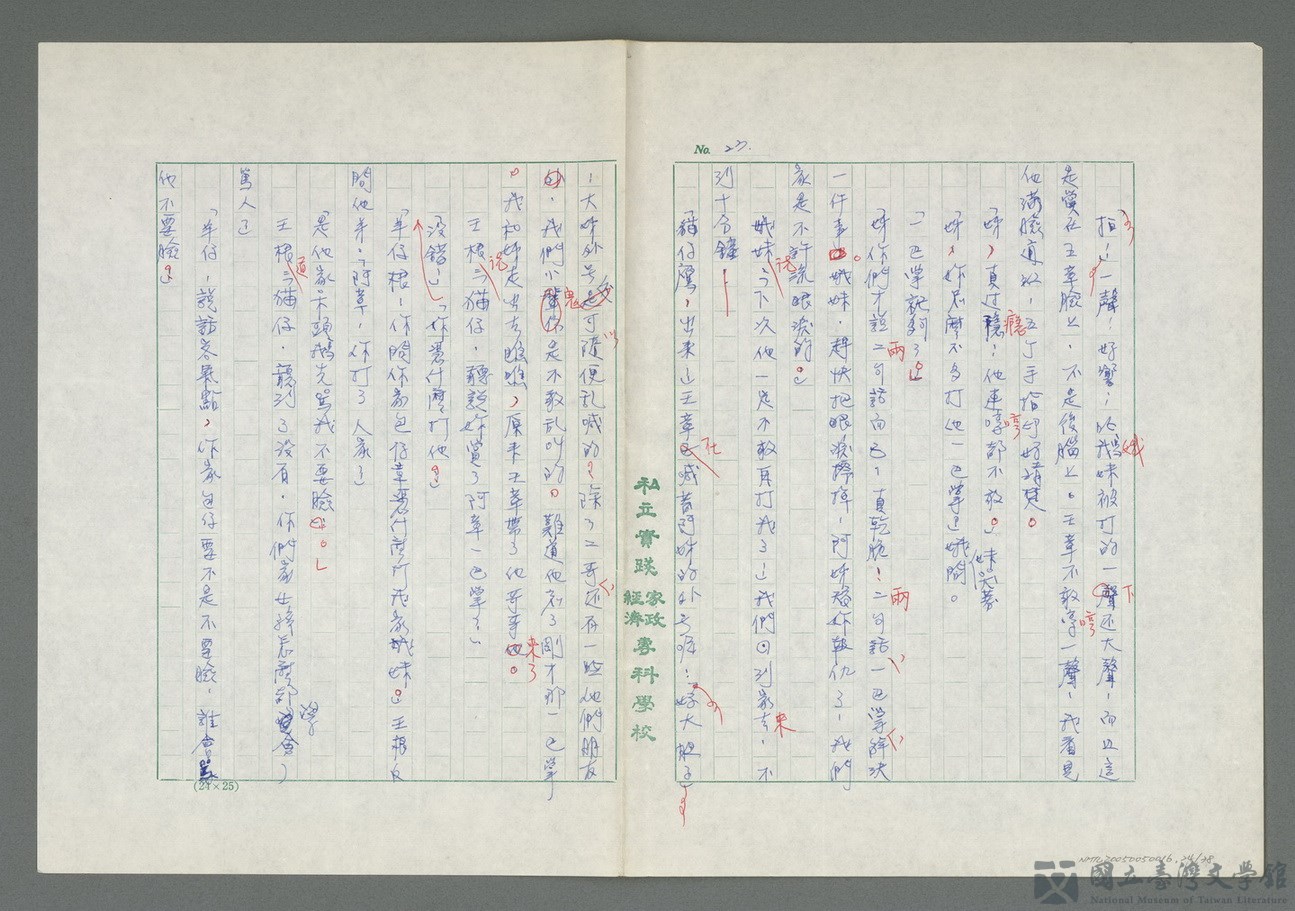 No. 27.
拍！一聲，好響，比鵝妹被打的一聲還大聲，而且這
是賞在王章臉上，不是後腦上。王章不敢哼一聲，我看見
他滿臉通紅，五丁手指印好清楚。
「姊，真過癮，他連哼都不敢。」妹笑著
「姊，妳怎麼不多打他一巴掌」娥問。
「一巴掌就夠了。」
「姊你們才說二句話而已，真乾脆！二句話一巴掌解決
一件事。娥妹，趕快把眼淚擦掉，阿姊替妳報仇了，我們
家是不許流眼淚的。」
娥妹說「下次他一定不敢再打我了」我們回到家來，不
到十分鐘
「貓仔鷹，出來」王章在喊著阿姊的外號，好大膽子，
大姊外號是可隨便亂喊的？除了二哥還有一些他們朋友
，我們小鬼是不敢亂叫的。難道他忘了剛才那一巴掌
。我和姊走出去瞧瞧，原來王章帶了他哥哥來了。
王根說「貓仔，聽說妳賞了阿章一巴掌」
「沒錯」「你憑什麼打他？」
「羊仔根，你問你家包仔章憑什麼打我家娥妹。」王根反
問他弟，「阿章，你打了人家」
「是他家大頭鵝先罵我不要臉。」
王根道「貓仔，聽到了沒有，你們家女孩怎麼都學會
罵人」
「羊仔，說話客氣點，你家包仔要不是不要臉，誰會罵
他不要臉？」
私立實踐家政經濟專科學校
(24×25)
NMTL20050050016, 24/28
國立臺灣文學館
National Museum of Taiwan Literature